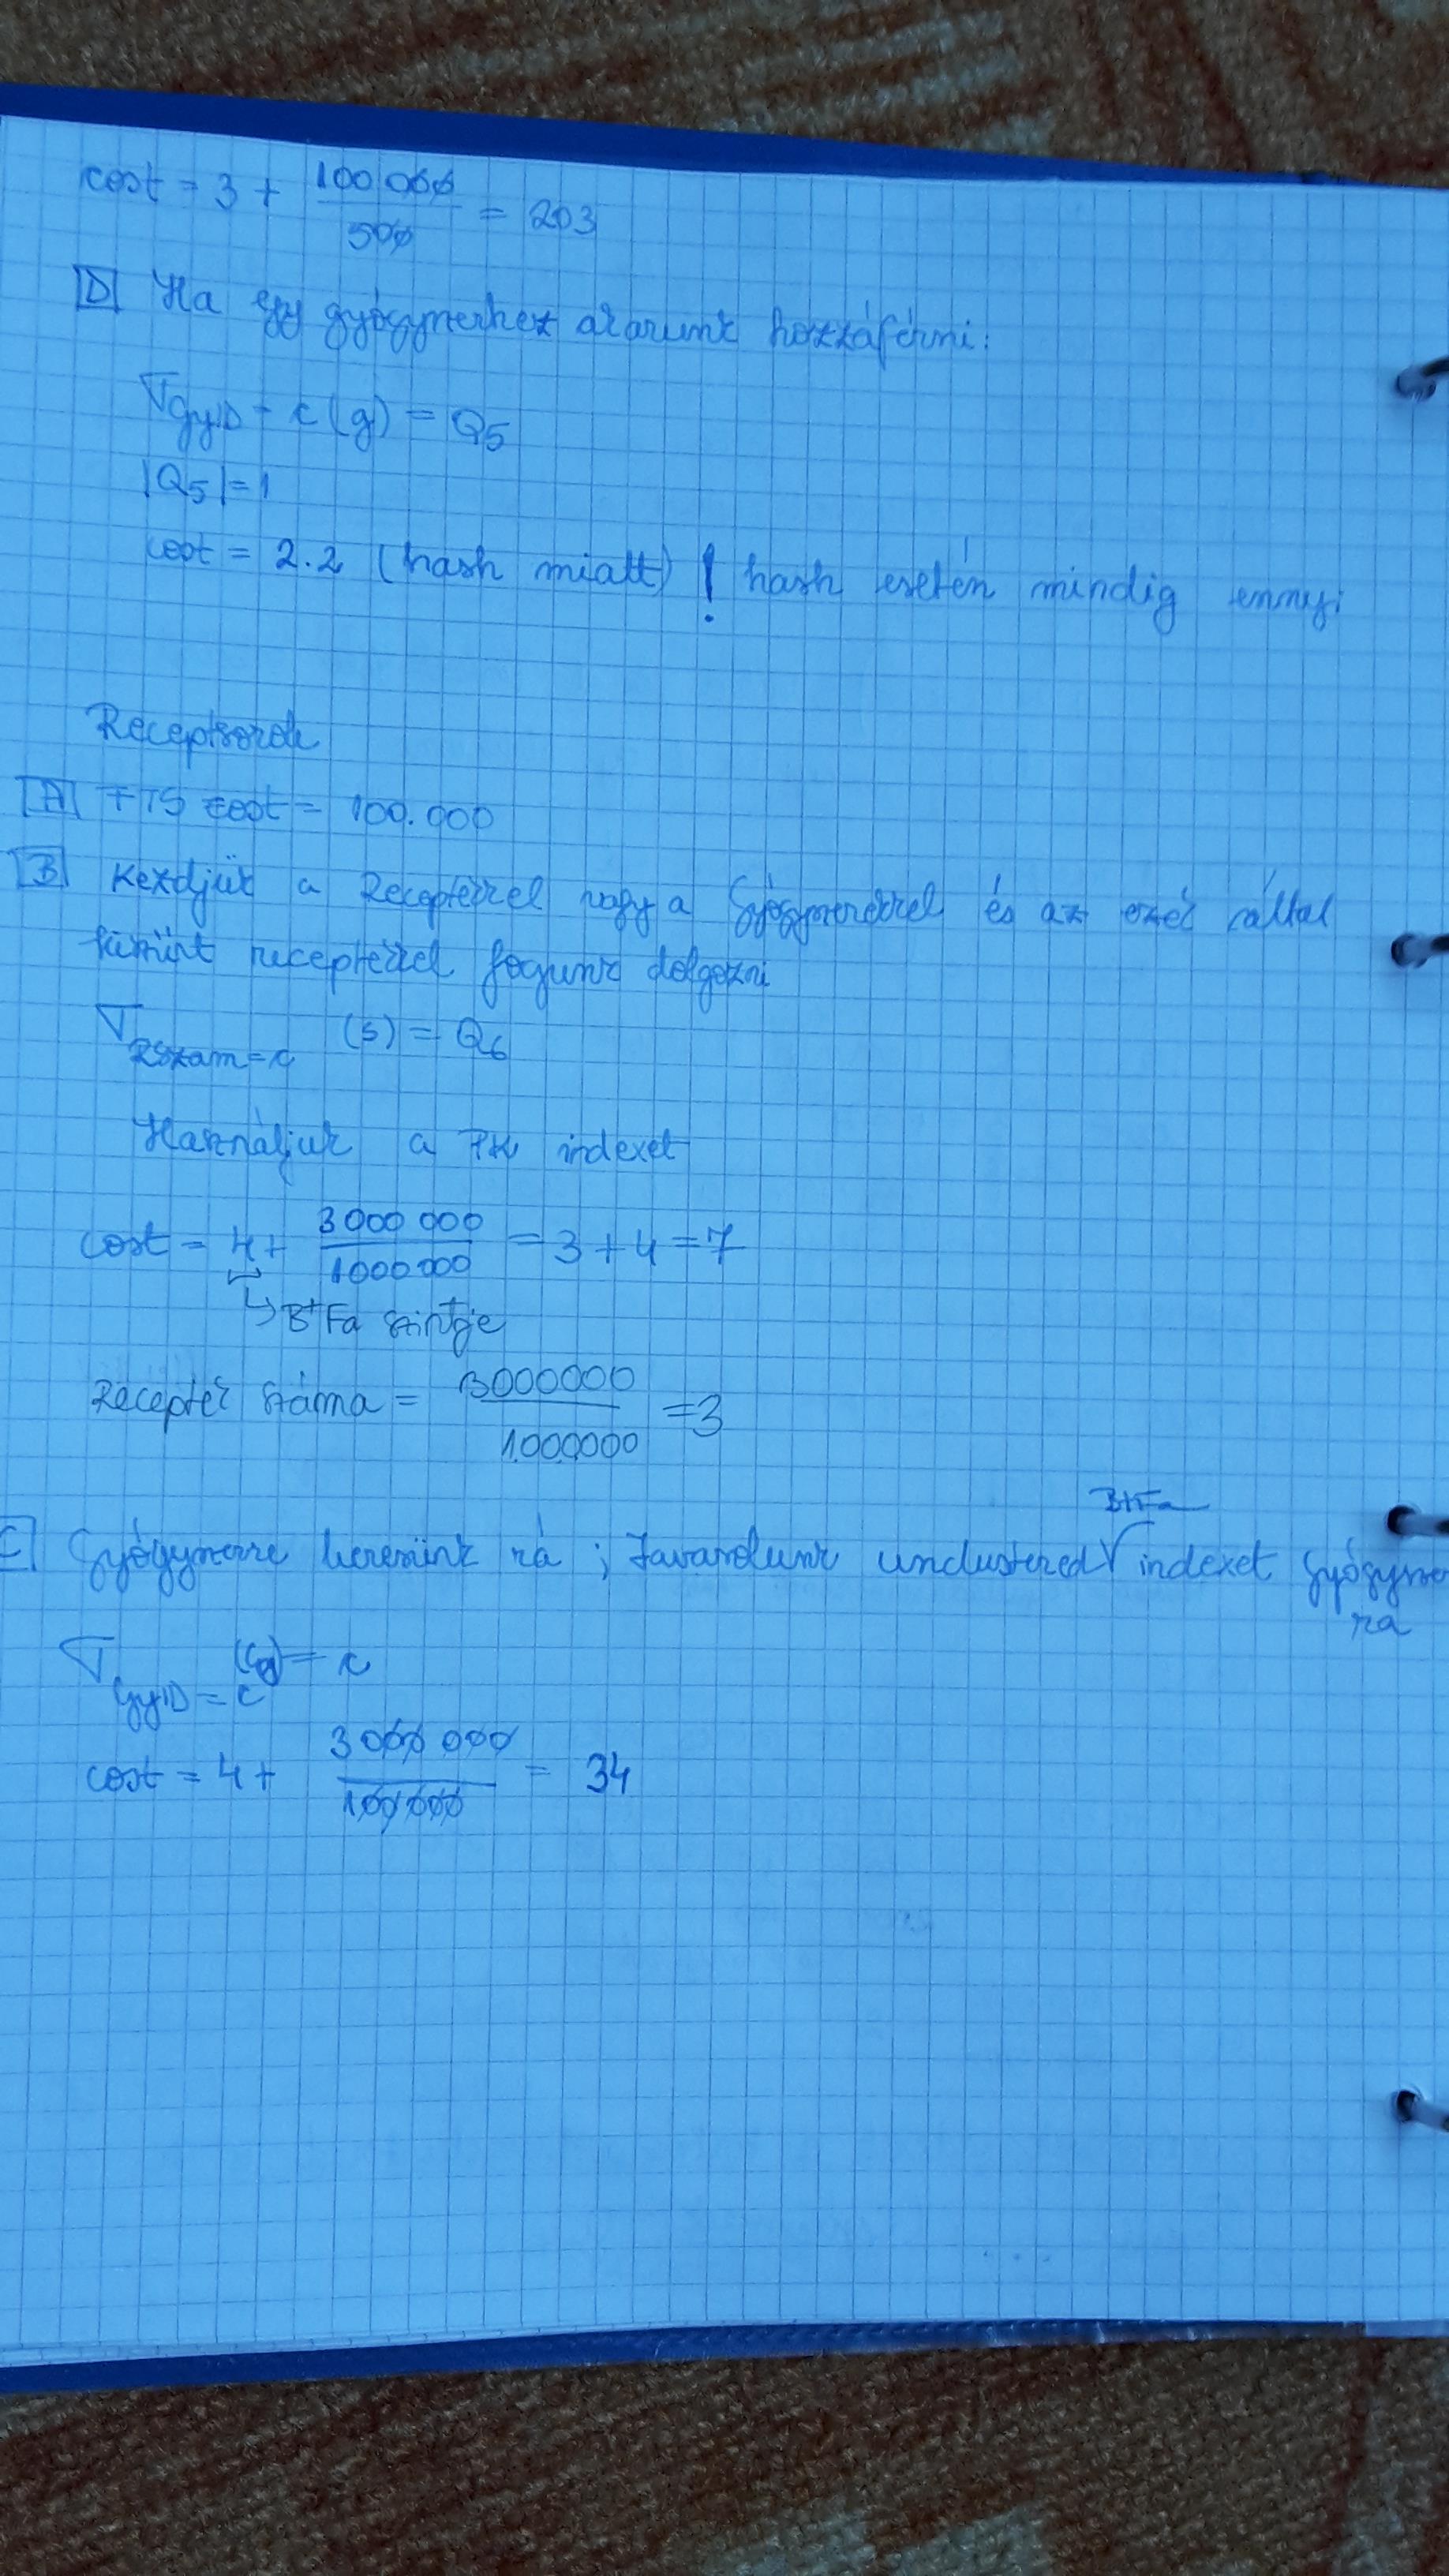 cost = 3 + 100 000 / 500 = 203
D Ha egy gyógyszerhez akarunk hozzáférni:
σ GyID = c (g) = Q5
|Q5| = 1
cost = 2.2 (hash miatt) ! hash esetén mindig ennyi
Receptsorok
A FTS cost = 100.000
B Kezdjük a Receptekkel vagy a Gyógyszerekkel és az ezek által
kiírt receptekkel fogunk dolgozni
σ RSzam = c (s) = Q6
Használjuk a PK indexet
cost = 4 + 3 000 000 / 1 000 000 = 3 + 4 = 7
↳ B+Fa szintje
Receptek száma = 3000000 / 1.000.000 = 3
B+Fa
C Gyógyszerre keresünk rá ; Javasolunk unclustered √ indexet Gyógyszer
ra
σ GyID = c = c
cost = 4 + 3 000 000 / 100 000 = 34